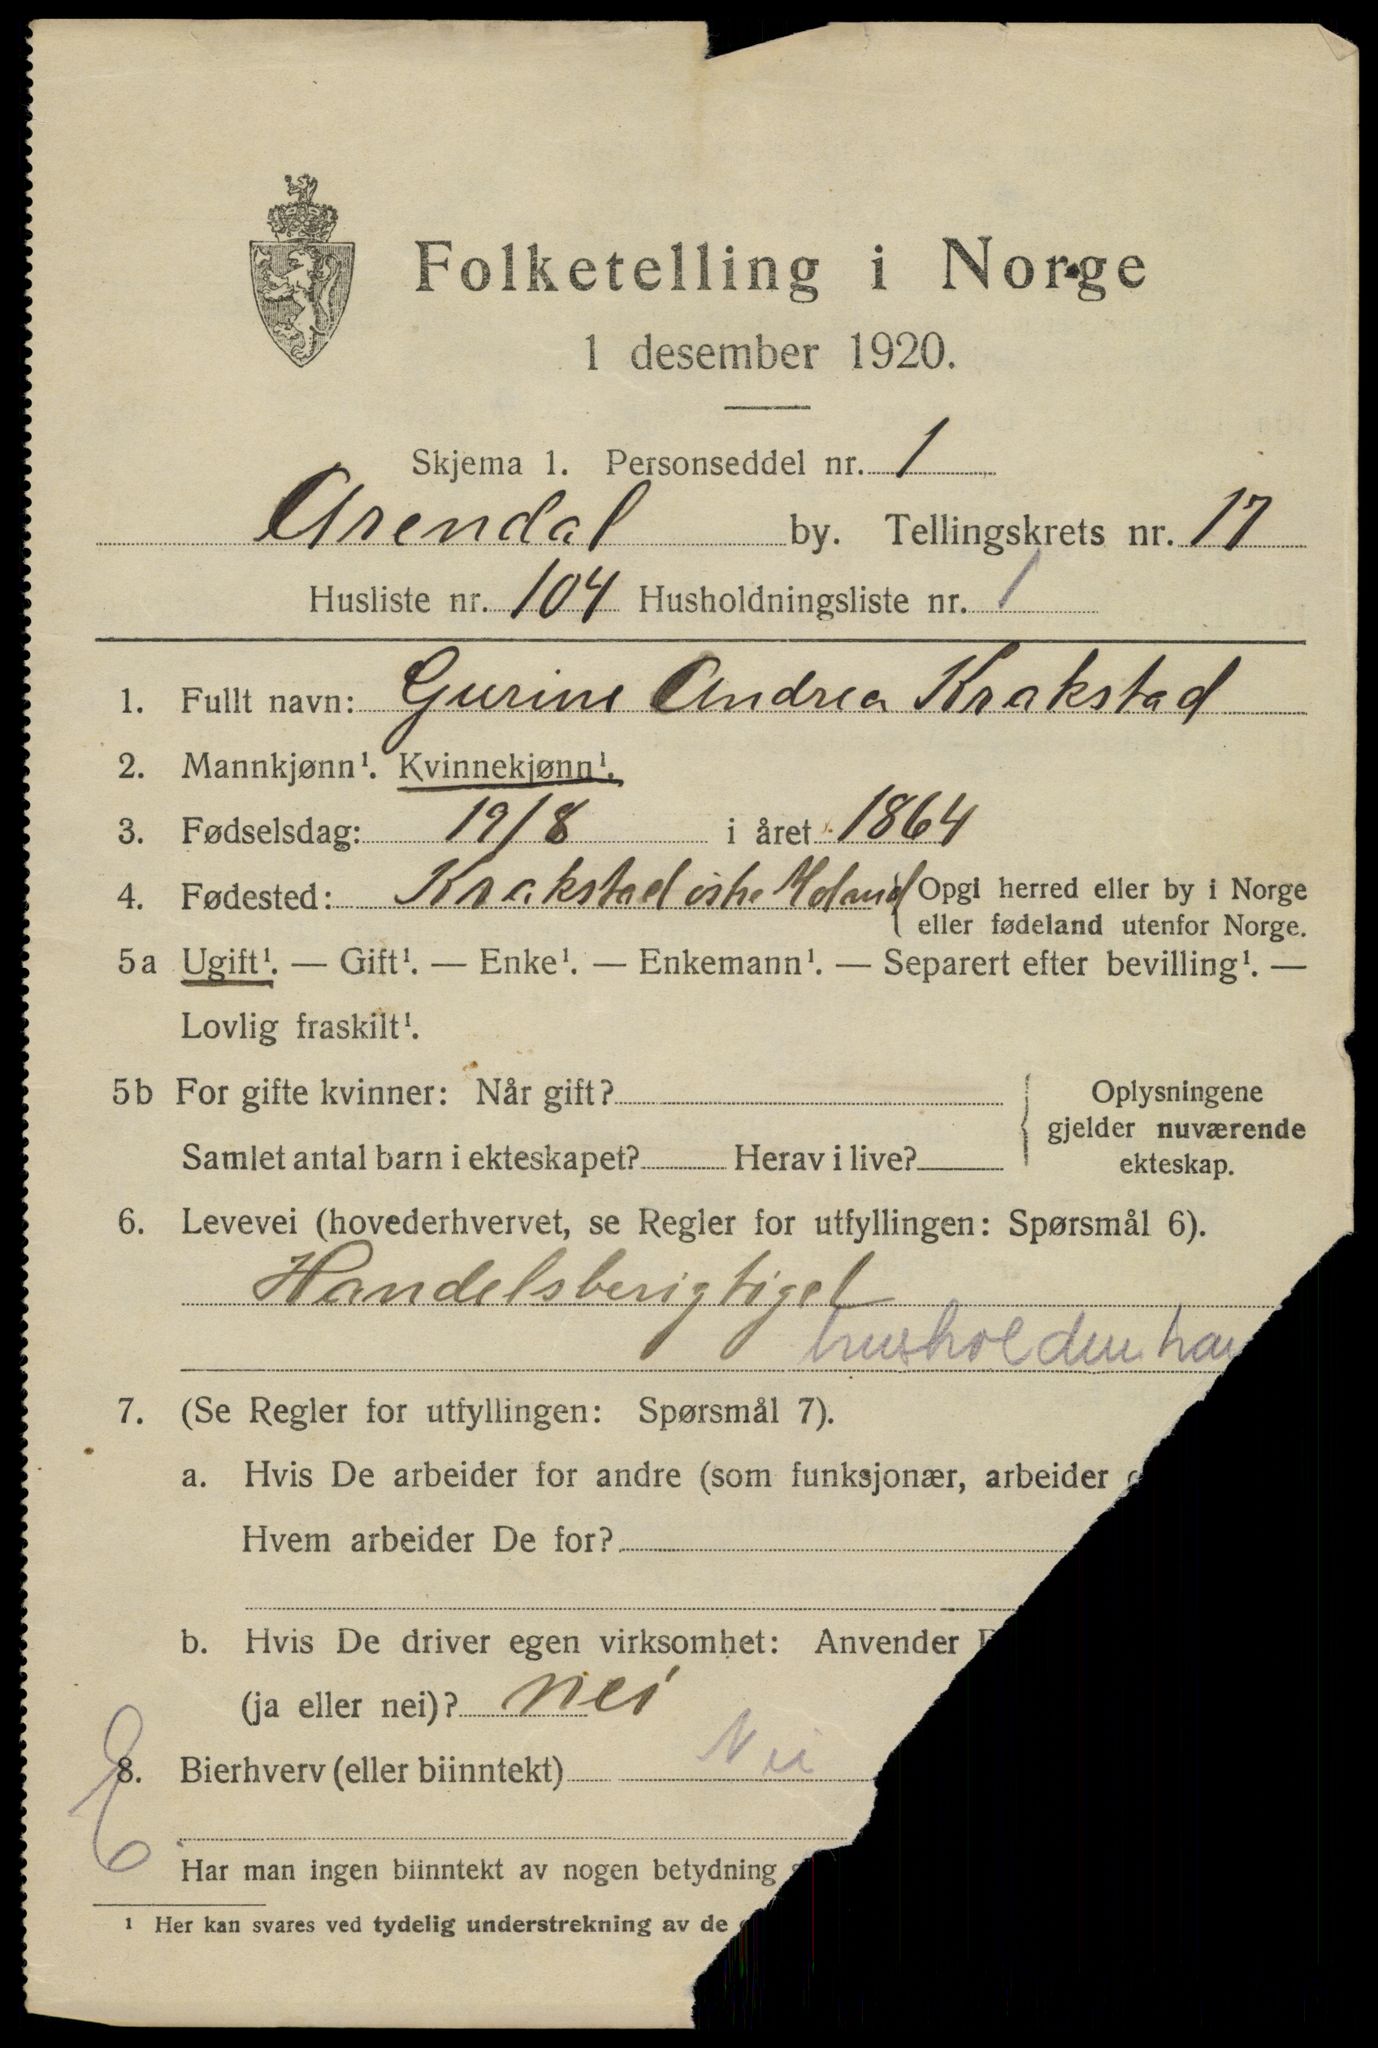 Folketelling i Norge
1 desember 1920.
Skjema 1. Personseddel nr. 1
Arendal by. Tellingskrets nr. 17
Husliste nr. 104 Husholdningsliste nr. 1
1. Fullt navn: Gurine Andrea Krakstad
2. Mannkjønn¹. Kvinnekjønn¹.
3. Fødselsdag: 19/8 i året 1864
4. Fødested: Krakstad Holand { Opgi herred eller by i Norge
eller fødeland utenfor Norge.
5a Ugift¹. — Gift¹. — Enke¹. — Enkemann¹. — Separert efter bevilling¹. —
Lovlig fraskilt¹.
5b For gifte kvinner: Når gift?
Samlet antal barn i ekteskapet? Herav i live?
Oplysningene
gjelder nuværende
ekteskap.
6. Levevei (hovederhvervet, se Regler for utfyllingen: Spørsmål 6).
Handelsberigtiget
7. (Se Regler for utfyllingen: Spørsmål 7).
a. Hvis De arbeider for andre (som funksjonær, arbeider
Hvem arbeider De for?
b. Hvis De driver egen virksomhet: Anvender
(ja eller nei)? nei
8. Bierhverv (eller biinntekt) Nei
E
Har man ingen biinntekt av nogen betydning
¹ Her kan svares ved tydelig understrekning av de